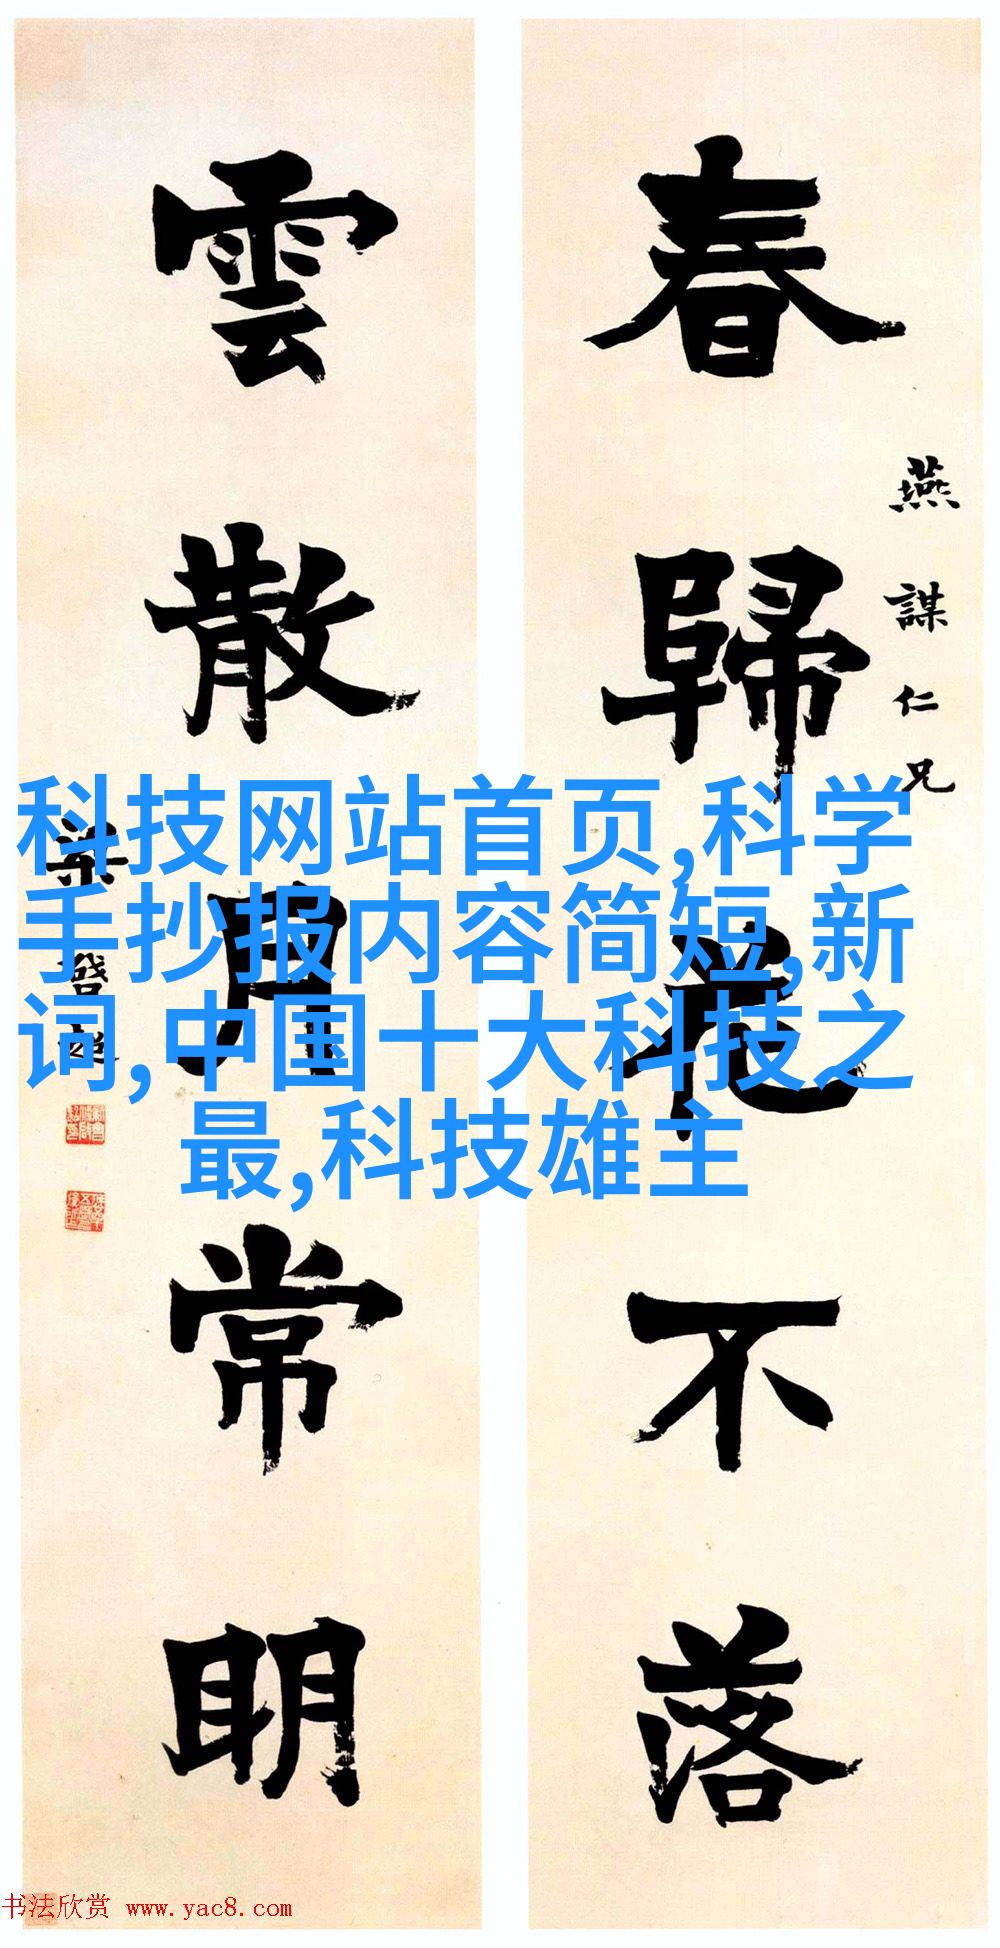 春歸花不落
燕謀仁兄
雲散月常明
梁啓超
科技网站首页,科学
手抄报内容简短,新
词,中国十大科技之
最,科技雄主
书法欣赏 www.yac8.com